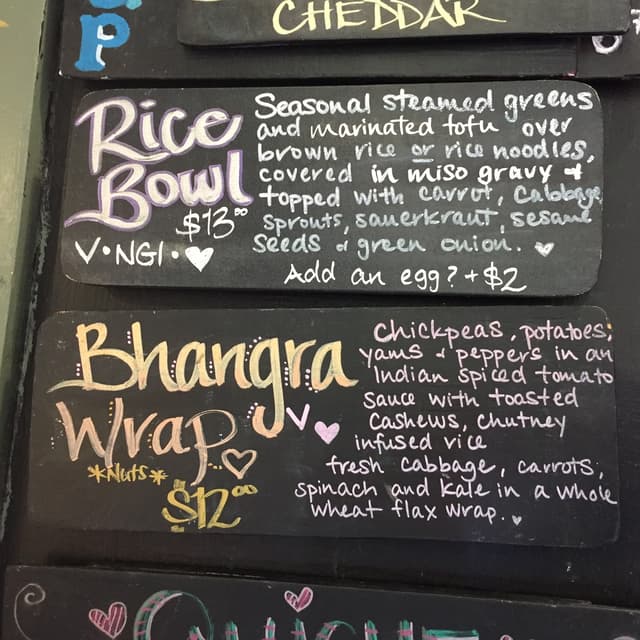 P
CHEDDAR
Rice
Bowl
$13.00
V•NGI•
Seasonal steamed greens
and marinated tofu over
brown rice or rice noodles,
covered in miso gravy &
topped with carrot, Cabbage,
sprouts, sauerkraut, sesame
seeds & green onion.
Add an egg? +$2
Bhangra
Wrap
V
*Nuts*
$12.00
Chickpeas, potatoes,
yams & peppers in an
Indian spiced tomato
sauce with toasted
Cashews, chutney
infused rice
fresh cabbage, carrots,
spinach and kale in a whole
wheat flax wrap.